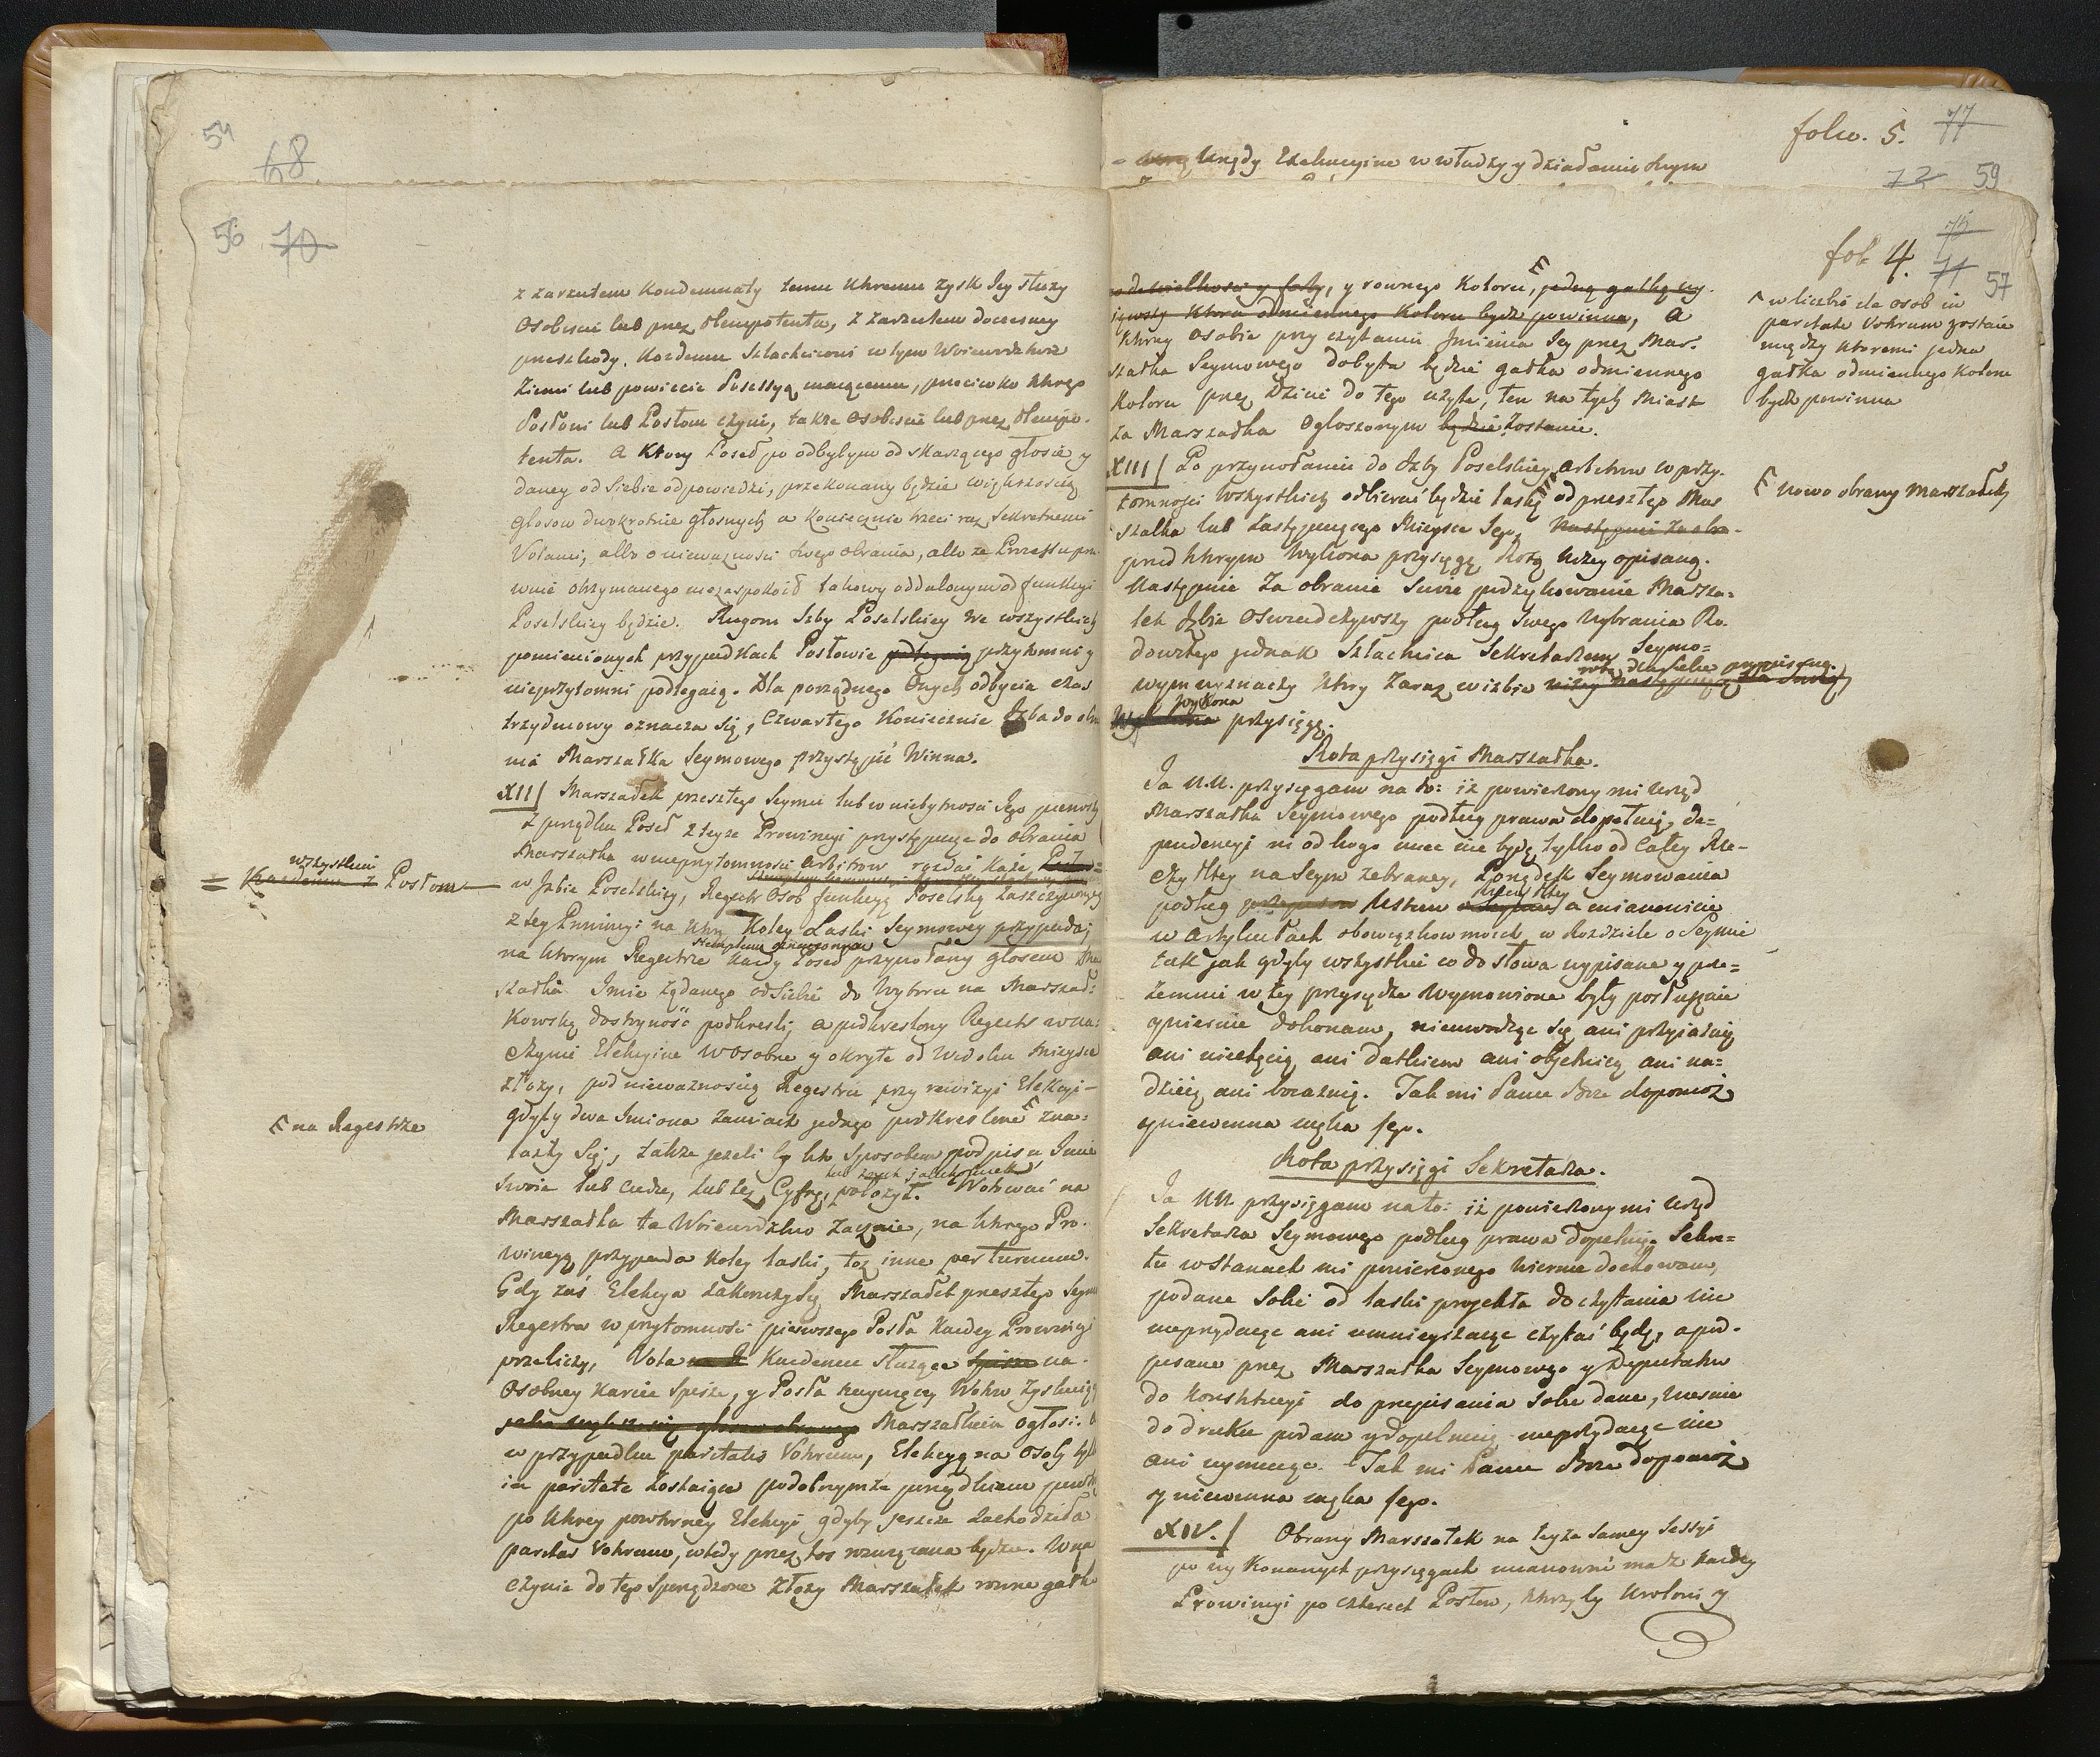 54 68
56 70
z zarzutem Kondemnaty temu Ktoremu zysk Jey służy
Osobiscie lub przez Plenipotenta, z zarzutem doczesney
przeszkody. Kozdemu Szlachcicowi w tym Woiewodztwie
Ziemi lub powiecie Possessyą maiącemu, przeciwko ktorego
Posłowi lub Posłom czyni, także Osobiscie lub przez Plenipo-
tenta. A Ktory Poseł po odbytym od skarzącego głosie y
daney od Siebie odpowiedzi, przekonany będzie większoscią
głosow dwokrotnie głosnych a Koniecznie trzeci raz Sekretnemi
Votami, albo o niewaznosci swego obrania, albo ze Processu pra
wnie otrzymanego niezaspokoił takowy oddalonym od funkcyi
Poselskiey będzie. Rugom Izby Poselskiey we wszystkich
pomienionych przypadkach Posłowie podlegaią przytomni y
nieprzytomni podlegaią. Dla porządnego Onych odbycia czas
trzydniowy oznacza się, Czwartego Koniecznie Izba do obra
nia Marszałka Seymowego przystąpić Winna.
XII Marszałek przeszłego Seymu lub w niebytnosci Jego pierwszy
z porządku Poseł z teyze Prowincyi przystępuiąc do Obrania
Marszałka w nieprzytomnosci Arbitrow rozdać każe
= wszystkim
Kazdemu z Posłom
w Izbie Poselskiey, Regestr Osob funkcyą Poselską zaszczyconych
z tey Prowincyi na Ktorą Koley Laski Seymowey przypada;
stemplem oznaczonym
na ktorym Regestrze kazdy Poseł przywołany głosem Mar
szałka Imie żądanego od Siebie do Wyboru na Marszał-
kowską dostoyność podkresli, a podkreslony Regestr w na-
czynie Elekcyine w osobne y okryte od Widoku mieysce
złoży, pod niewaznoscią Regestru przy rewizyi Elekcyi
gdyby dwa Imiona zamiast jednego podkreslone zna-
F na Regestrze
lazły się, także jezeli by kto sposobem podpisu Imie
lub znak jakikolwiek
swoie lub cudze, lub też Cyfrę, położył. Wotować na
Marszałka ta Woiewodztwo Zacznie, na ktorego Pro-
wincyą przypada Koley laski, toż inne per turnum.
Gdy zaś Elekcya zakonczy się Marszałek przeszłego Seymu
Regestra w przytomnosci pierwszego Posła Kazdey Prowincyi
przeliczy, Vota Kazdemu służące spisze na
Osobney Karcie Spisze, y Posła naywięcey Wotow Zyskuiące
jako większoscią głosow obranego Marszałkiem ogłosi.
w przypadku paritatis Votorum, Elekcyą na Osoby tylko
in paritate Zostaiące podobnymze porządkiem powtorzy
po ktorey powtorney Elekcyi gdyby jeszcze Zachodziła
paritas Votorum, wtedy przez los rozwiązana będzie. W na
czynie do tego Sporządzone Złozy Marszałek rowne gałki
Urzędy Exekucyine w władzy y działaniu swym
folio. 5. 77
72 59
fol 4. 75
71 57
co do wielkosci y fasy, y rownego Koloru, F jedną gałkę wy-
jąwszy Ktora odmiennego Koloru bydz powinna, a
F w liczbie ile osob in
paritate Votorum zostaie
między ktoremi jedna
gałka odmiennego Koloru
bydz powinna
Ktorey osobie przy czytaniu Jmienia Jey przez Mar-
szałka Seymowego dobyta będzie gałka odmiennego
Koloru przez Dzieci do tego użyte, ten na tych miast
za Marszałka Ogłoszonym będzie Zostanie.
XIII Po przywołaniu do Izby Poselskiey Arbitrow w przy-
tomności Wszystkich odbierać będzie laskę F od przeszłego Mar
F nowo obrany Marszałek
szałka lub Zastępuiącego Mieysce Jego, Następnie za obra-
przed ktorym Wykona przysięgę Rotą niżey opisaną.
Następnie za obranie Swoie podziękowanie Marsza-
łek Izbie Oswiadczywszy podług swego Wybrania Ro-
dowitego jednak Szlachcica Sekretarzem Seymo-
rotą dla siebie przepisaną.
wym wyznaczy ktory Zaraz w izbie niżey następuiącą dla Siebie
wykona
Wykonna przysięgę.
Rota przysięgi Marszałka.
Ja N.N. przysięgam na to: iż powierzony mi Urząd
Marszałka Seymowego podług prawa dopełnię, de-
pendencyi ni od kogo miec nie będę tylko od Całey Rze-
czyPltey na Seym zebraney, Porządek Seymowania
podług przepisow Ustaw o Seymie a mianowicie
w Artykułach obowięzkow moich w Rozdziele o Seymie
tak jak gdyby wszystkie co do słowa wypisane y prze-
zemnie w tey przysiędze Wymowione były posłusznie
y wiernie dokonam, nieuwodząc się ani przyjaźnią
ani niechęcią ani datkiem ani obietnicą ani na-
dzieią ani boiaźnią. Tak mi Panie Boze dopomoż
y niewinna męka Jego.
Rota przysięgi Sekretarza.
Ja NN przysięgam na to: iż powierzony mi Urząd
Sekretarza Seymowego podług prawa dopełnię. Sekre-
tu w Stanach mi powierzonego Wiernie dochowam,
podane Sobie od laski projekta do czytania nie
nieprzydaiąc ani umnieyszaiąc czytać będę, a pod-
pisane przez Marszałka Seymowego y Deputatow
do Konstytucyi do przepisania sobie dane, Wiernie
do druku podam y dopełnię nieprzydaiąc nic
ani uymuiąc. Tak mi Panie Boze Dopomoż
y niewinna męka Jego.
XIV. Obrany Marszałek na teyze Samey Sessyi
po wykonanych przysięgach mianowić ma z kazdey
Prowincyi po czterech Posłow, ktorzyby Krolowi y